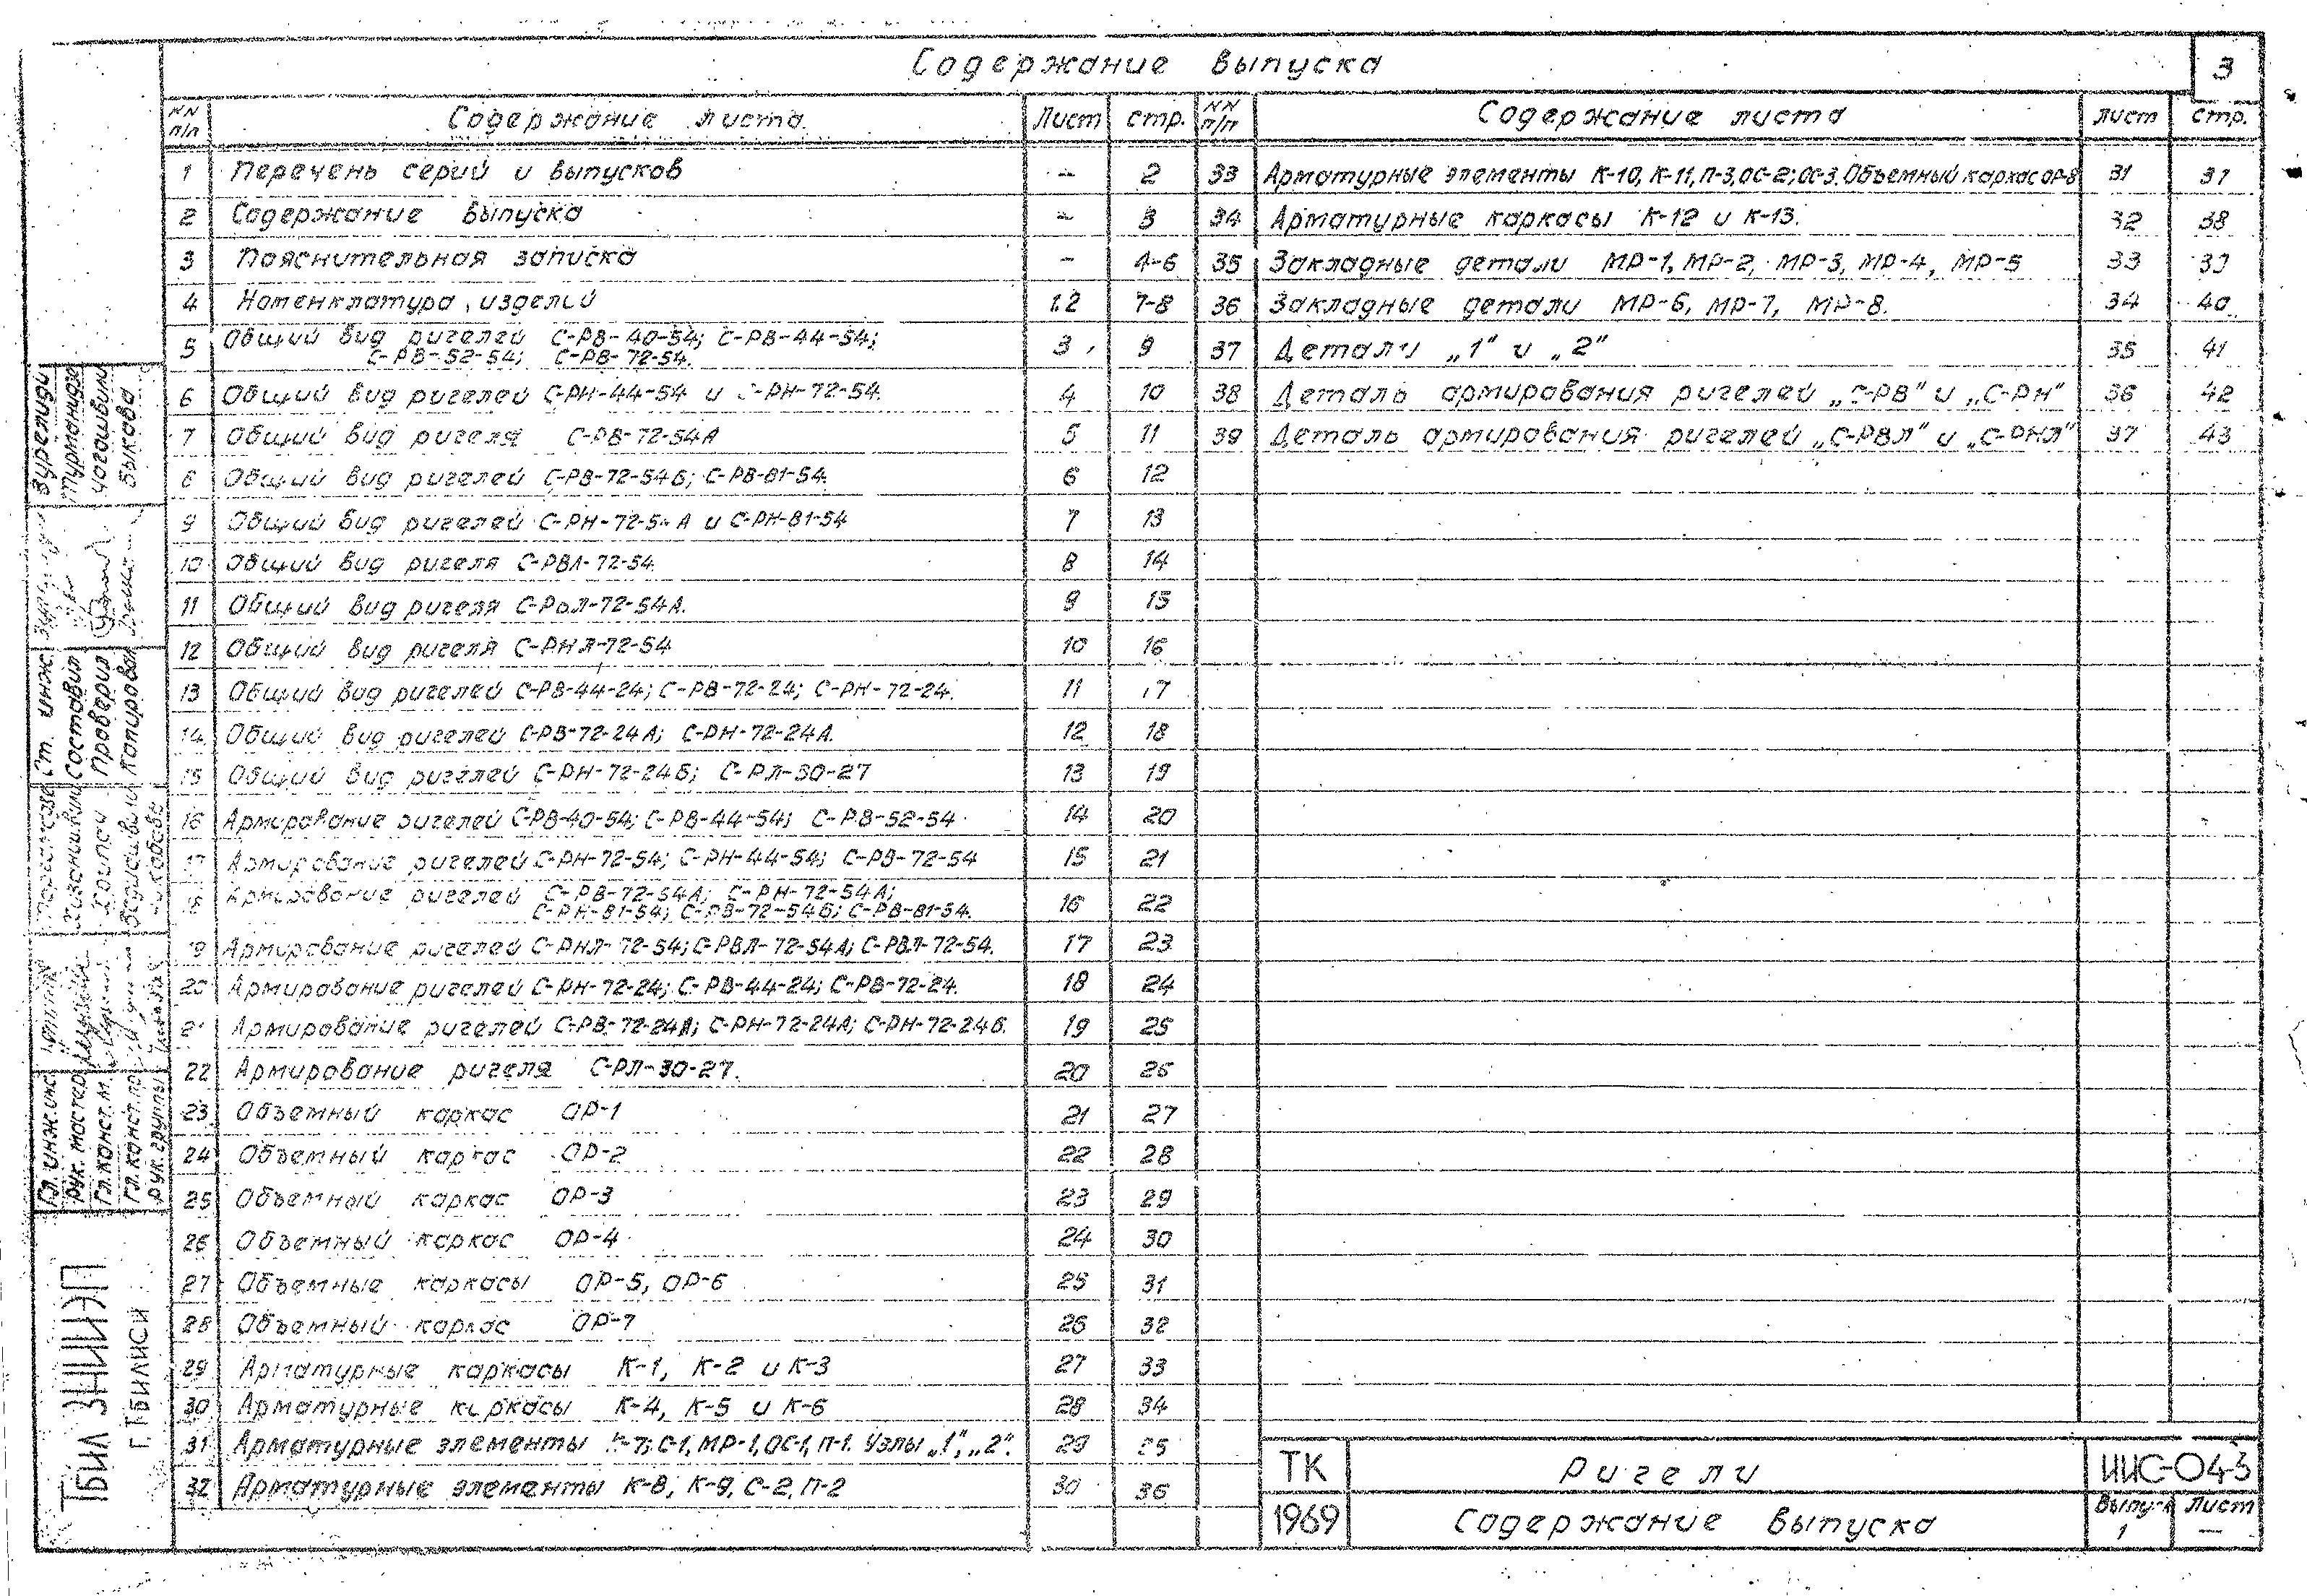 Содержание выпуска
3
NN п/п Содержание листа Лист стр.
1 Перечень серий и выпусков — 2
2 Содержание выпуска — 3
3 Пояснительная записка — 4-6
4 Номенклатура изделий 1.2 7-8
5 Общий вид ригелей С-РВ-40-54; С-РВ-44-54;
С-РВ-52-54; С-РВ-72-54. 3 9
6 Общий вид ригелей С-РН-44-54 и С-РН-72-54. 4 10
7 Общий вид ригеля С-РВ-72-54А 5 11
8 Общий вид ригелей С-РВ-72-54Б; С-РВ-81-54. 6 12
9 Общий вид ригелей С-РН-72-54А и С-РН-81-54 7 13
10 Общий вид ригеля С-РВЛ-72-54. 8 14
11 Общий вид ригеля С-РВЛ-72-54А. 9 15
12 Общий вид ригеля С-РНЛ-72-54 10 16
13 Общий вид ригелей С-РВ-44-24; С-РВ-72-24; С-РН-72-24. 11 17
14 Общий вид ригелей С-РВ-72-24А; С-РН-72-24А. 12 18
15 Общий вид ригелей С-РН-72-24Б; С-РЛ-30-27 13 19
16 Армирование ригелей С-РВ-40-54; С-РВ-44-54; С-РВ-52-54 14 20
17 Армирование ригелей С-РН-72-54; С-РН-44-54; С-РВ-72-54 15 21
18 Армирование ригелей С-РВ-72-54А; С-РН-72-54А;
С-РН-81-54; С-РВ-72-54Б; С-РВ-81-54. 16 22
19 Армирование ригелей С-РНЛ-72-54; С-РВЛ-72-54А; С-РВЛ-72-54. 17 23
20 Армирование ригелей С-РН-72-24; С-РВ-44-24; С-РВ-72-24. 18 24
21 Армирование ригелей С-РВ-72-24А; С-РН-72-24А; С-РН-72-24Б. 19 25
22 Армирование ригеля С-РЛ-30-27. 20 26
23 Объемный каркас ОР-1 21 27
24 Объемный каркас ОР-2 22 28
25 Объемный каркас ОР-3 23 29
26 Объемный каркас ОР-4 24 30
27 Объемные каркасы ОР-5, ОР-6 25 31
28 Объемный каркас ОР-7 26 32
29 Арматурные каркасы К-1, К-2 и К-3 27 33
30 Арматурные каркасы К-4, К-5 и К-6 28 34
31 Арматурные элементы К-7; С-1, МР-1, ОС-1, П-1. Узлы „1", „2". 29 35
32 Арматурные элементы К-8, К-9, С-2, П-2 30 36
NN п/п Содержание листа лист стр.
33 Арматурные элементы К-10, К-11, П-3, ОС-2; ОС-3. Объемный каркас ОР-8 31 37
34 Арматурные каркасы К-12 и К-13. 32 38
35 Закладные детали МР-1, МР-2, МР-3, МР-4, МР-5 33 39
36 Закладные детали МР-6, МР-7, МР-8. 34 40
37 Детали „1" и „2" 35 41
38 Деталь армирования ригелей „С-РВ" и „С-РН" 36 42
39 Деталь армирования ригелей „С-РВЛ" и „С-РНЛ" 37 43
ТК Ригели ИИС-04-3
1969 Содержание выпуска
Выпуск Лист
1 —
Ст. инж.
Составил
Проверил
Копировал
Быкова
Гл. инж. инс.
Рук. мастер.
Гл. конст. м.
Гл. конст. пр.
Рук. группы
Тбил ЗНИИЭП
г. Тбилиси